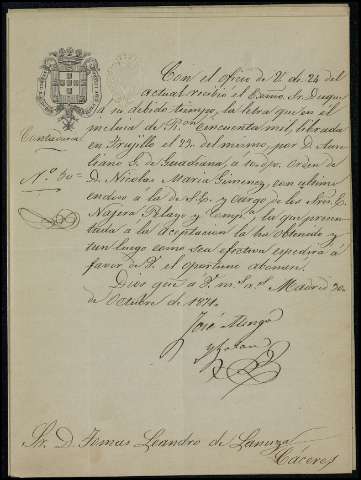 Con el oficio de V. de 24 del
actual recibió el Excmo. Sr. Duque
á su debido tiempo, la letra que en el
mismo incluia de Rvon Cincuenta mil, librada
Contaduria
en Trujillo el 23 del mismo, por D. Aure
liano G. de Guadiana, á 10 d/v. orden de
N.º 30=
D. Nicolas Maria Gimenez, con ultimo
endoso a la de S.E. y cargo de los Sres. E.
Najera Pelayo y Compª. la que presen
tada a la aceptacion la ha obtenido y
tan luego como sea efectiva espedirá á
favor de V. el oportuno abonaré.
Dios gue. a V. ms. as. Madrid 30
de Octubre de 1871.
José
Sr. D. Tomas Leandro de Lanuza
Cáceres